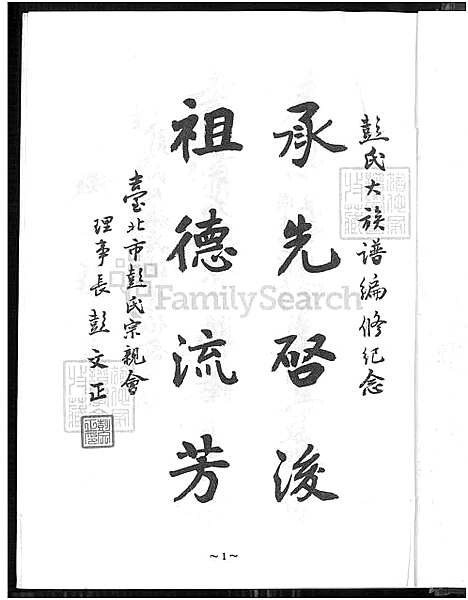 彭氏大族譜編修紀念
承先啓後
祖德流芳
臺北市彭氏宗親會
理事長彭文正
FamilySearch
~1~